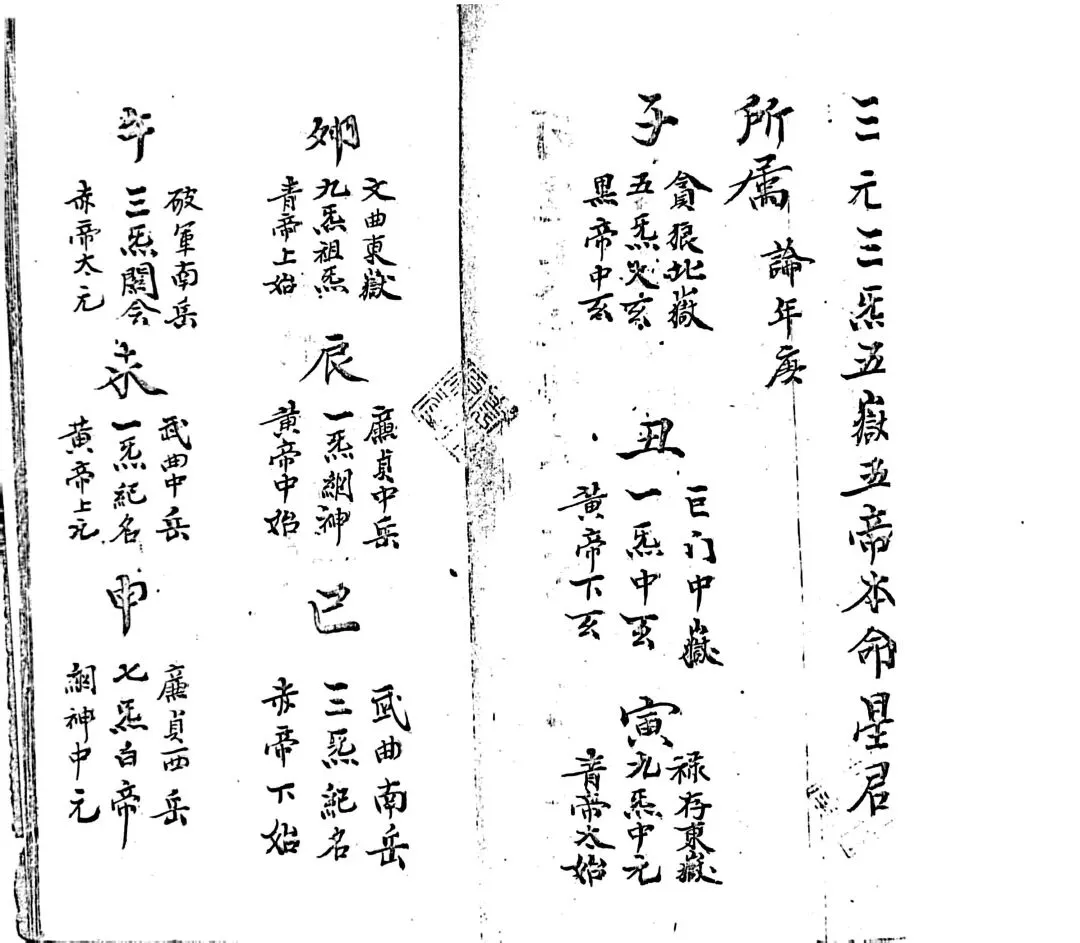 三元三炁五嶽五帝本命星君
所属 論年庚
子
貪狼北嶽
五炁火玄
黑帝中玄
丑
巨门中嶽
一炁中玄
黃帝下玄
寅
禄存東嶽
九炁中元
青帝太始
卯
文曲東嶽
九炁祖炁
青帝上始
辰
廉貞中岳
一炁綱神
黃帝中始
巳
武曲南岳
三炁紀名
赤帝下始
午
破軍南岳
三炁關会
赤帝太元
未
武曲中岳
一炁紀名
黃帝上元
申
廉貞西岳
七炁白帝
綱神中元